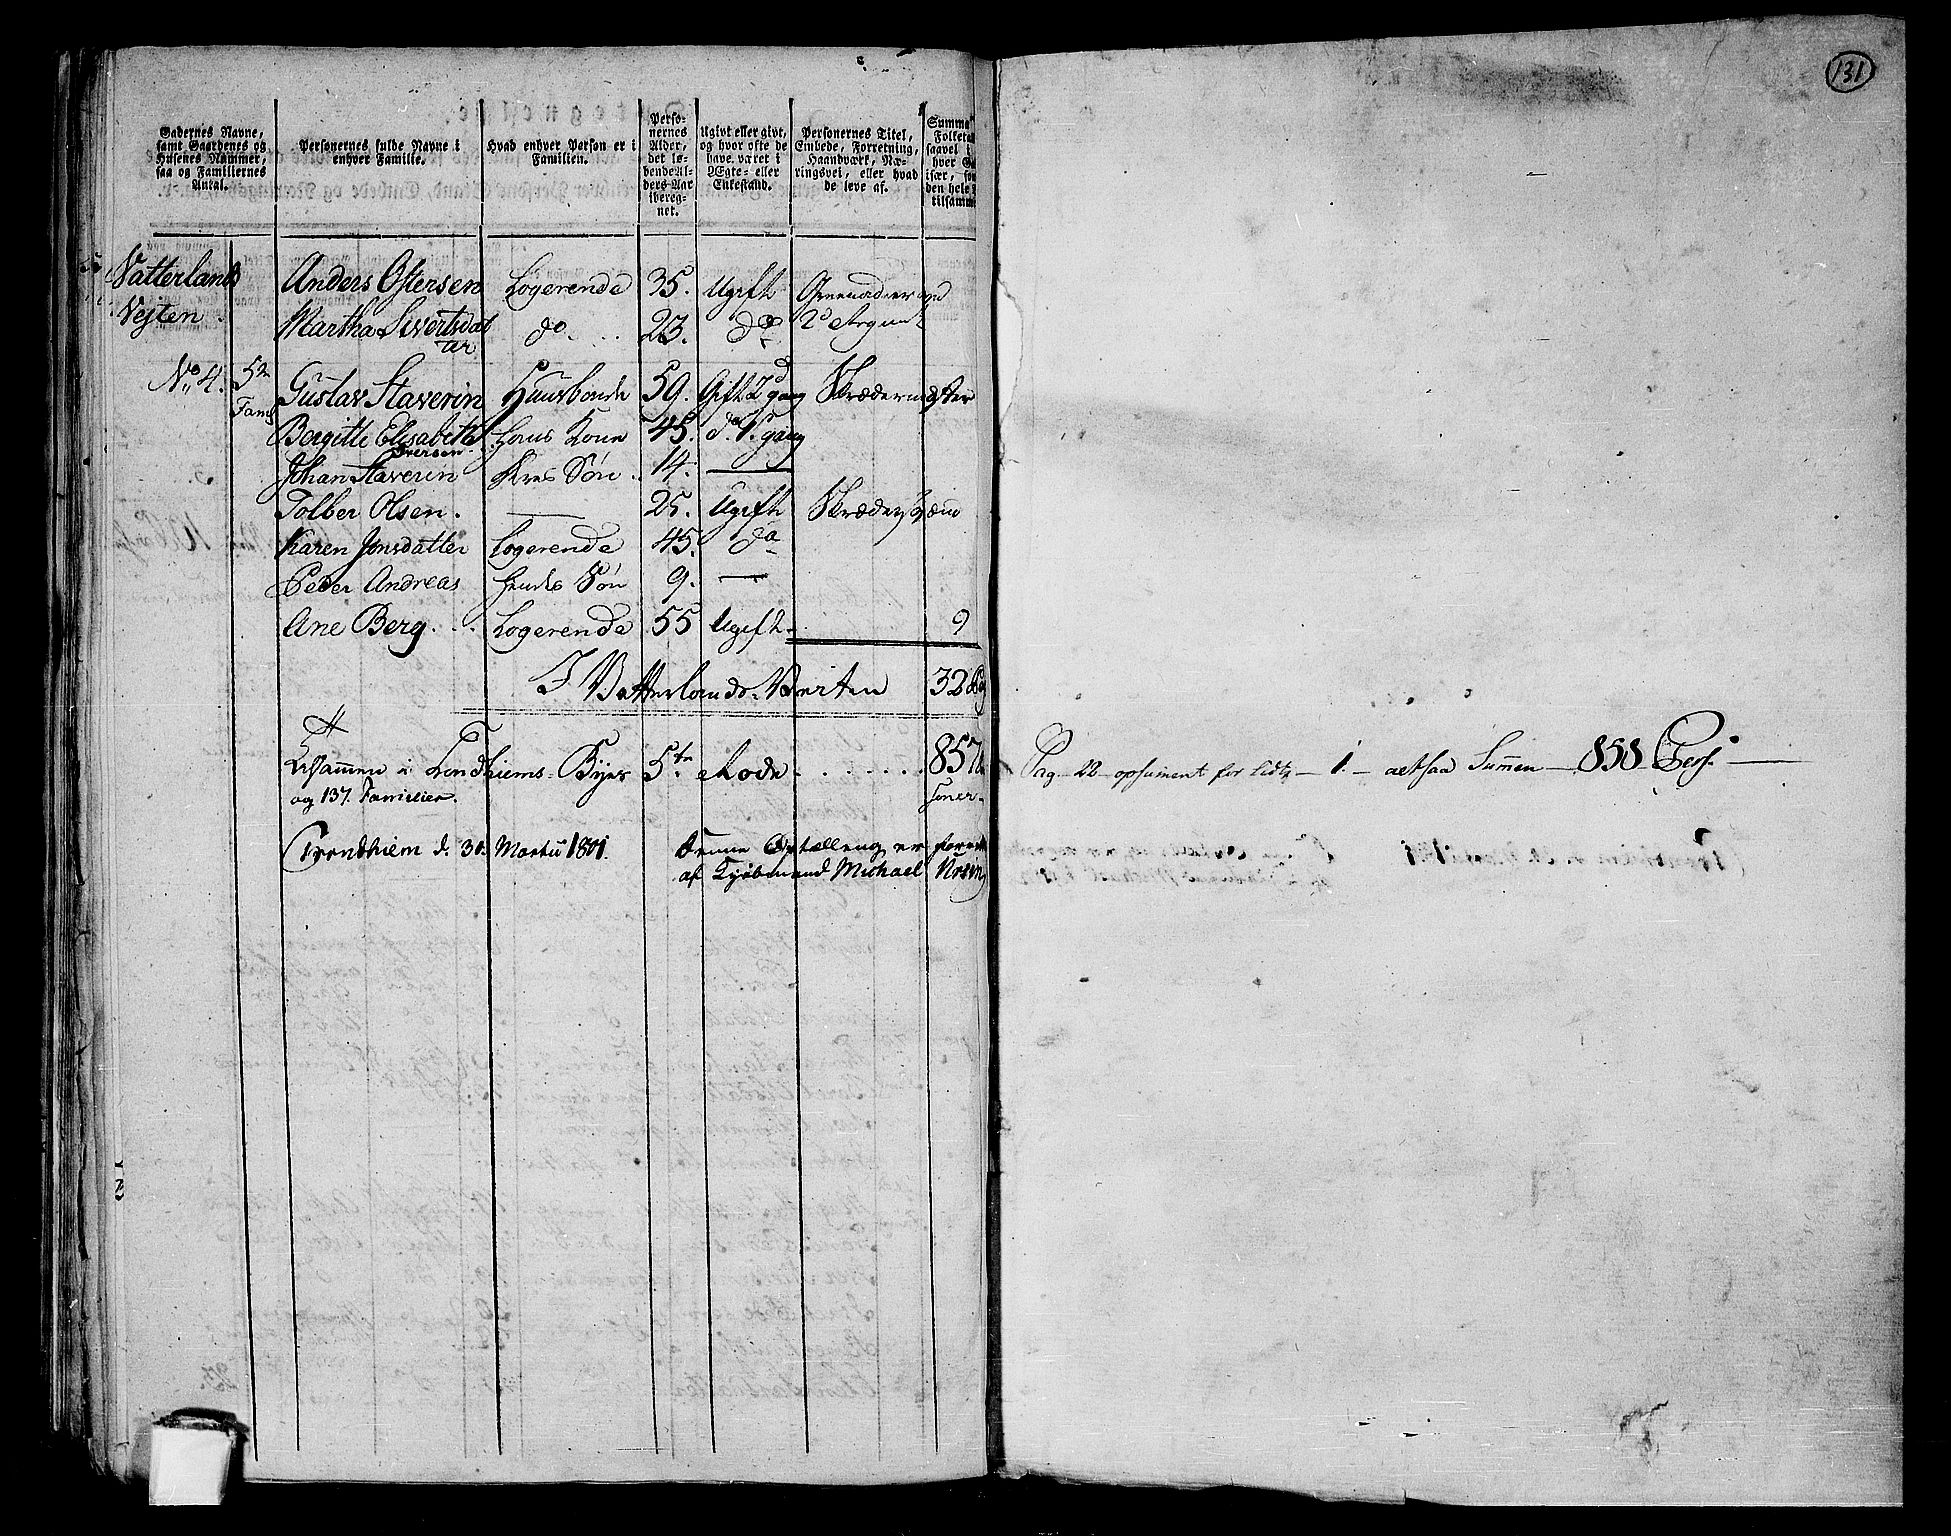 131
Gadernes Navne, samt Gaardenes og Husenes Nummer, saa og Familiernes Antal.
Personernes fulde Navne i enhver Familie.
Hvad enhver Person er i Familien.
Personernes Alder, det løbendeAlders-Aar iberegnet.
Ugivt eller givt, og hvor ofte de have været i Ægte- eller Enkestand.
Personernes Titel, Embede, Forretning, Haandværk, Næringsvei, eller hvad de leve af.
Vatterlands Anders Ostersen Logerende 35. Ugift Grenadeer
Vejten. Martha Sivertsdatter do 23. do
No 4. 5te Fam Gustav Staverin Huusbonde 59. Gift 2d gang Skrædermester
Bergitte Elisabeth Iversen Hans Kone 45. do 1. gang
Johan Staverin Søn 14. —
Tolber Olsen. — 25. Ugift
Karen Jonsdatter Logerende 45. do
Peder Andreas Hendes Søn 9. —
Ane Berg. Logerende 55 Ugift 9
I Vatterlands Veiten 32
Tilsammen i Trondhiems Byes 5te Rode 857
og 137. Familier.
Trondhiem d: 31. Martii 1801. Denne Optælling er
af Kjøbmand Michael
Pag 22 for lidt 1. altsaa Summen 858 Pers.